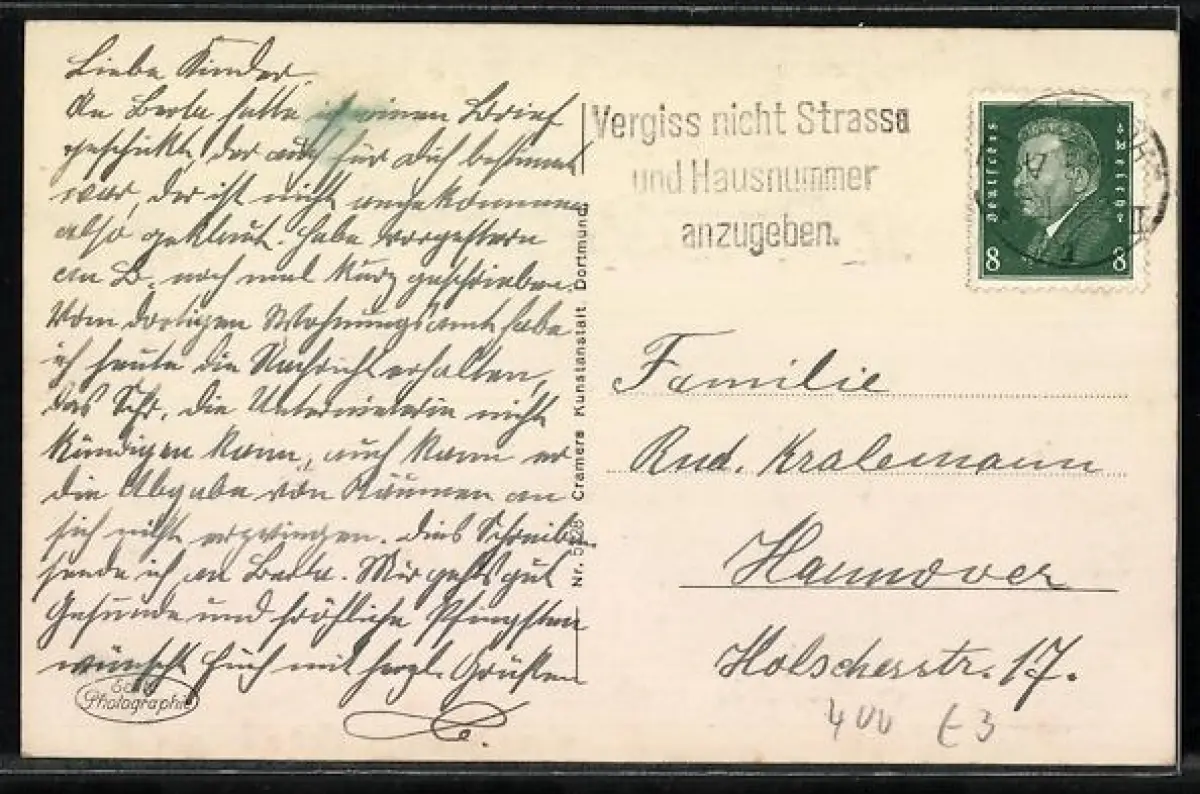 Liebe Kinder,
An Berta hatte ich einen Brief
geschickt, der auch für Dich bestimmt
war, der ist nicht angekommen
also geklaut. Habe vorgestern
an B. noch mal kurz geschrieben.
Vom dortigen Wohnungsamt habe
ich heute die Nachricht erhalten,
das Schr. die Untermieterin nicht
kündigen kann, auch kann er
die Abgabe von Räumen an
sich nicht erzwingen. Dies Schreiben
sende ich an Berta. Mir gehts gut
Gesunde und fröhliche Pfingsten
wünscht Euch mit herzl. Grüßen
Echte
Photographie
Nr. Cramers Kunstanstalt Dortmund
Vergiss nicht Strasse
und Hausnummer
anzugeben.
Deutsches Reich
8 8
Familie
Rud. Kralemann
Hannover
Holscherstr. 17.
400 E3